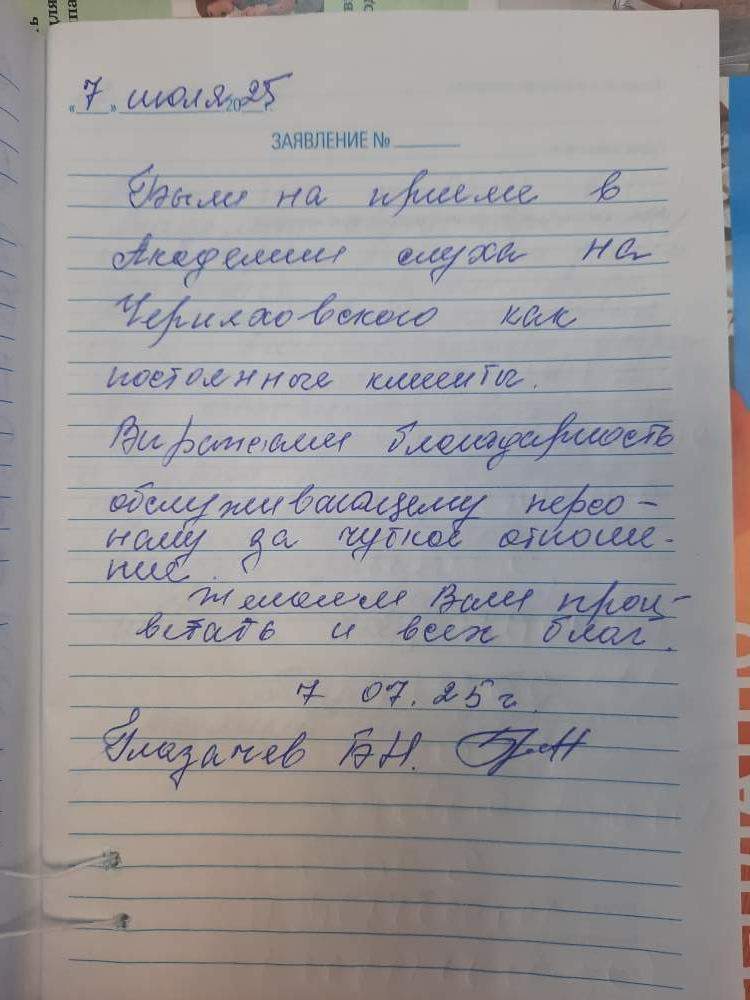 «7» июля 2025 г.
ЗАЯВЛЕНИЕ №
Были на приеме в
Академии слуха на
Черняховского как
постоянные клиенты.
Выражаем благодарность
обслуживающему персо-
налу за чуткое отноше-
ние.
Желаем Вам проц-
ветать и всех благ.
7 07.25г.
Глазачев БН.